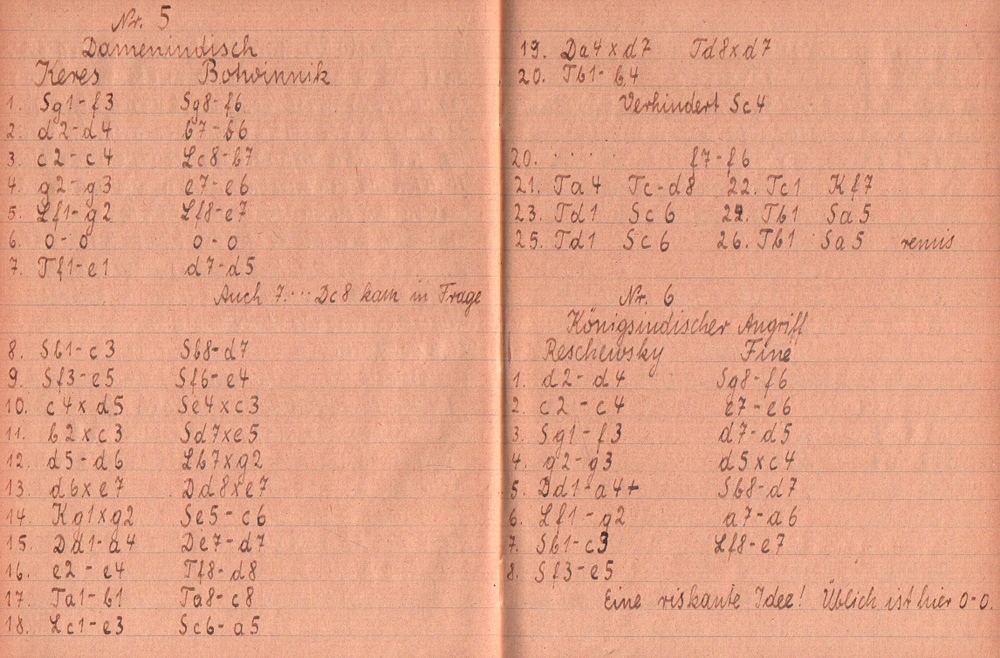 Nr. 5
Damenindisch
Keres Botwinnik
1. Sg1-f3 Sg8-f6
2. d2-d4 b7-b6
3. c2-c4 Lc8-b7
4. g2-g3 e7-e6
5. Lf1-g2 Lf8-e7
6. 0-0 0-0
7. Tf1-e1 d7-d5
Auch 7.... Dc8 kam in Frage
8. Sb1-c3 Sb8-d7
9. Sf3-e5 Sf6-e4
10. c4xd5 Se4xc3
11. b2xc3 Sd7xe5
12. d5-d6 Lb7xg2
13. d6xe7 Dd8xe7
14. Kg1xg2 Se5-c6
15. Dd1-a4 De7-d7
16. e2-e4 Tf8-d8
17. Ta1-b1 Ta8-c8
18. Lc1-e3 Sc6-a5
19. Da4xd7 Td8xd7
20. Tb1-b4
Verhindert Sc4
20. ..... f7-f6
21. Ta4 Tc-d8 22. Tc1 Kf7
23. Td1 Sc6 24. Tb1 Sa5
25. Td1 Sc6 26. Tb1 Sa5 remis
Nr. 6
Königsindischer Angriff
Reschewsky Fine
1. d2-d4 Sg8-f6
2. c2-c4 e7-e6
3. Sg1-f3 d7-d5
4. g2-g3 d5xc4
5. Dd1-a4+ Sb8-d7
6. Lf1-g2 a7-a6
7. Sb1-c3 Lf8-e7
8. Sf3-e5
Eine riskante Idee! Üblich ist hier 0-0.